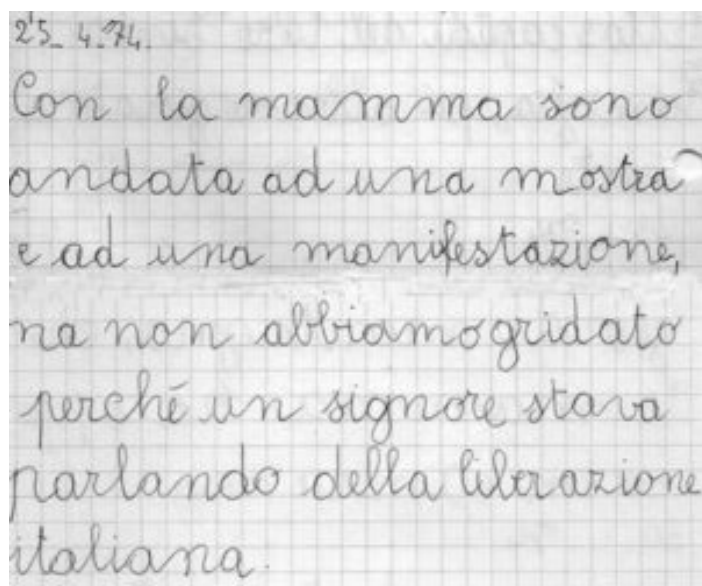 25_ 4_74.
Con la mamma sono
andata ad una mostra
e ad una manifestazione,
na non abbiamo gridato
perché un signore stava
parlando della liberazione
italiana.